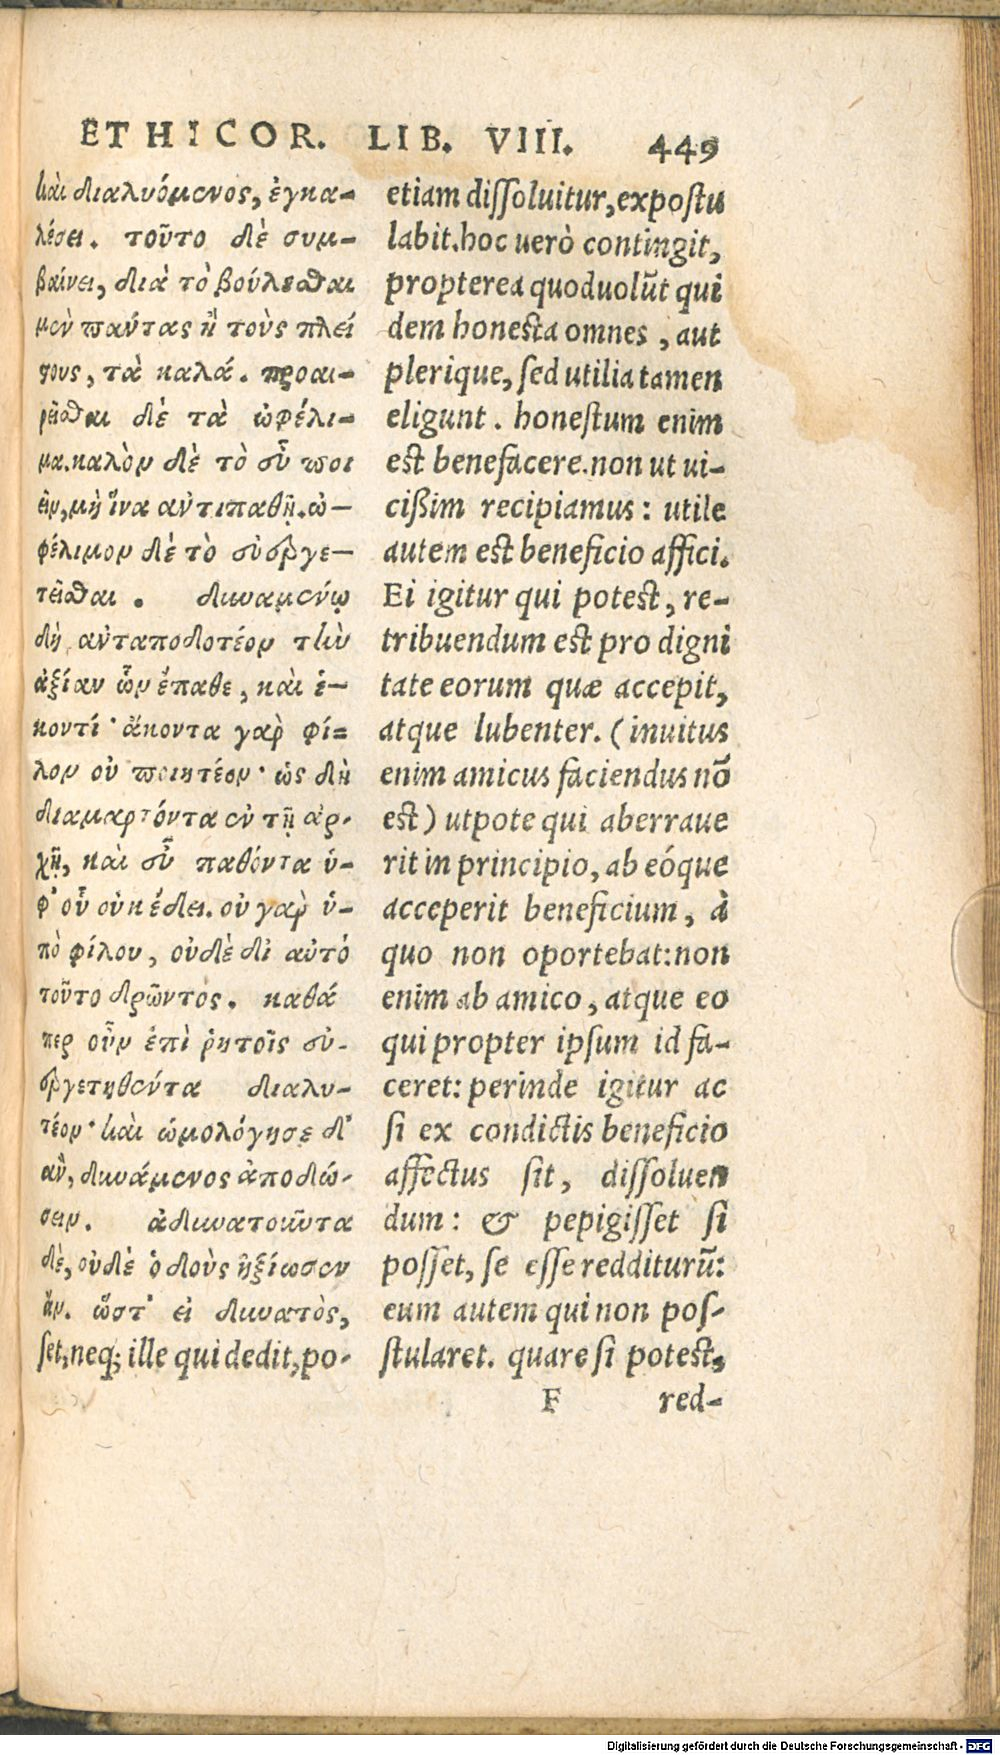 ETHICOR. LIB. VIII. 449
καὶ διαλυόμενος, ἐγκα-
λέσει. τοῦτο δὲ συμ-
βαίνει, διὰ τὸ βούλεσθαι
μὲν παύτας ἢ τοὺς πλεί
στους, τὰ καλά. προαι-
ρεῖσθαι δὲ τὰ ὠφέλι-
μα. καλὸν δὲ τὸ εὖ ποι
εῖν, μὴ ἵνα αὐτιπαθῇ. ὠ-
φέλιμον δὲ τὸ εὐεργε-
τεῖσθαι. δυναμένῳ
δὴ αὐταποδοτέον τὴν
ἀξίαν ὧν ἔπαθε, καὶ ἑ-
κοντί· ἄκοντα γὰρ φί-
λον οὐ ποιητέον· ὡς δὴ
διαμαρτόντα ἐν τῇ ἀρ-
χῇ, καὶ εὖ παθόντα ὑ-
φ' οὗ οὐκ ἔδει. οὐ γὰρ ὑ-
πὸ φίλου, οὐδὲ δι αὐτό
τοῦτο δρῶντος. καθά
περ οὖν ἐπὶ ῥητοῖς εὐ-
εργετηθέντα διαλυ-
τέον· καὶ ὡμολόγησε δ'
ἂν, δυνάμενος ἀποδώ-
σειν. ἀδυνατοῦντα
δὲ, οὐδὲ ὁ δοὺς ἠξίωσεν
ἄν. ὥστ' εἰ δυνατὸς,
set, neq; ille qui dedit, po-
etiam dissoluitur, expostu
labit. hoc uerò contingit,
propterea quod uolũt qui
dem honesta omnes, aut
plerique, sed utilia tamen
eligunt. honestum enim
est benefacere. non ut ui-
cißim recipiamus: utile
autem est beneficio affici.
Ei igitur qui potest, re-
tribuendum est pro digni
tate eorum quæ accepit,
atque lubenter. (inuitus
enim amicus faciendus nõ
est) utpote qui aberraue
rit in principio, ab eóque
acceperit beneficium, à
quo non oportebat: non
enim ab amico, atque eo
qui propter ipsum id fa-
ceret: perinde igitur ac
si ex condictis beneficio
affectus sit, dissoluen
dum: & pepigisset si
posset, se esse redditurũ:
eum autem qui non pos-
stularet. quare si potest,
F red-
Digitalisierung gefördert durch die Deutsche Forschungsgemeinschaft - DFG